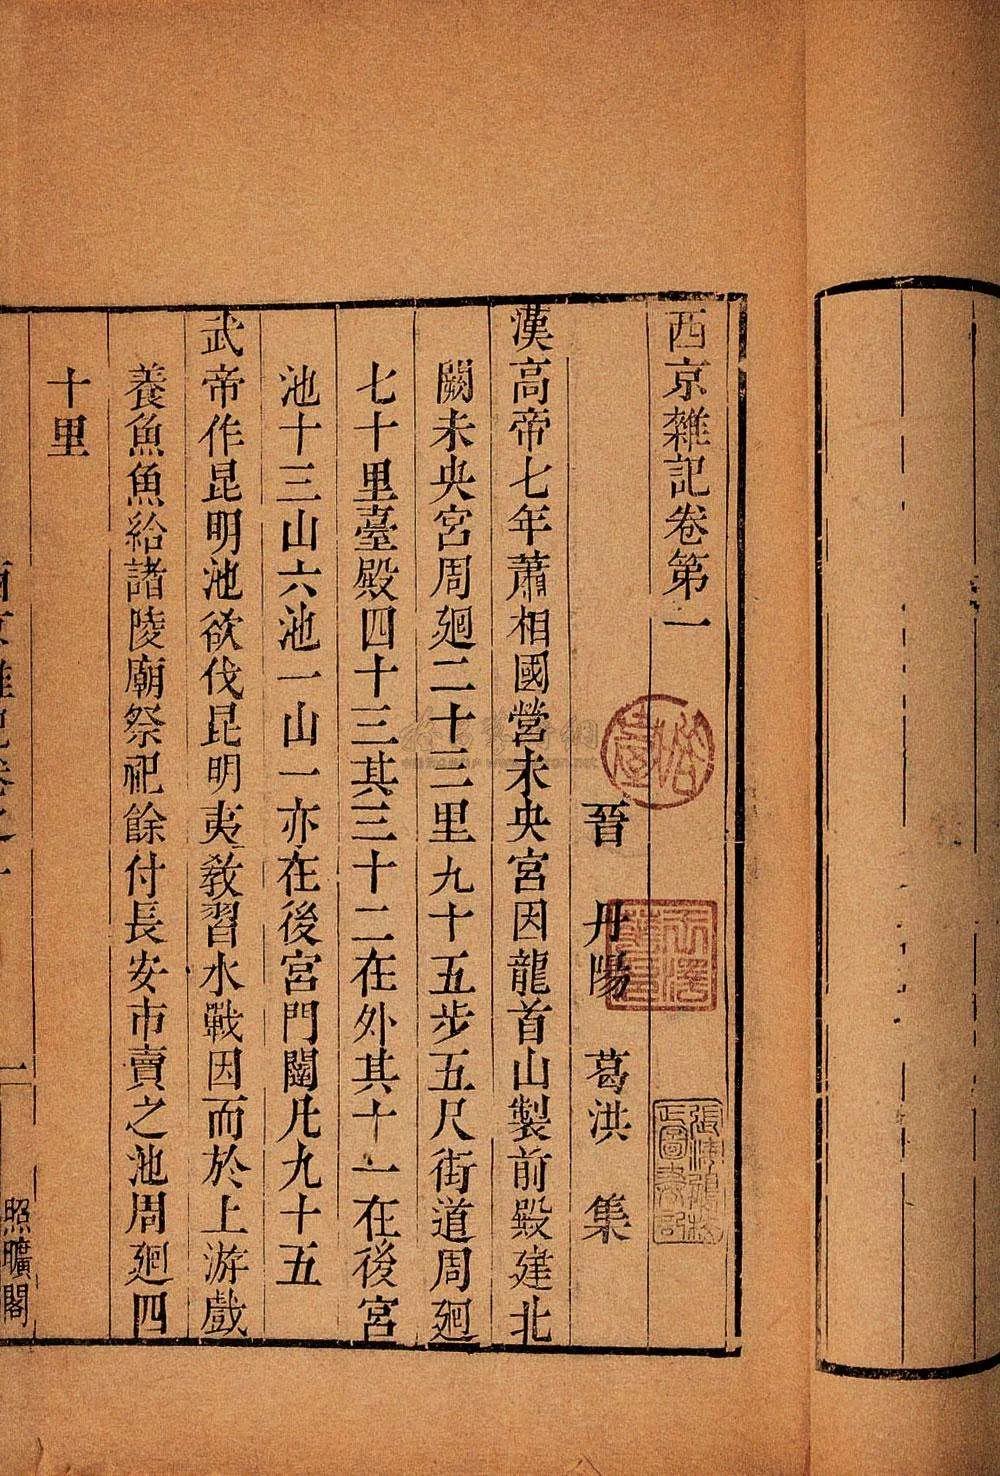 西京雜記卷第一
晉 丹陽 葛洪 集
漢高帝七年蕭相國營未央宮因龍首山製前殿建北
闕未央宮周廻二十二里九十五步五尺街道周廻
七十里臺殿四十三其三十二在外其十一在後宮
池十三山六池一山一亦在後宮門闥凡九十五
武帝作昆明池欲伐昆明夷敎習水戰因而於上游戲
養魚魚給諸陵廟祭祀餘付長安市賣之池周廻四
十里
照曠閣